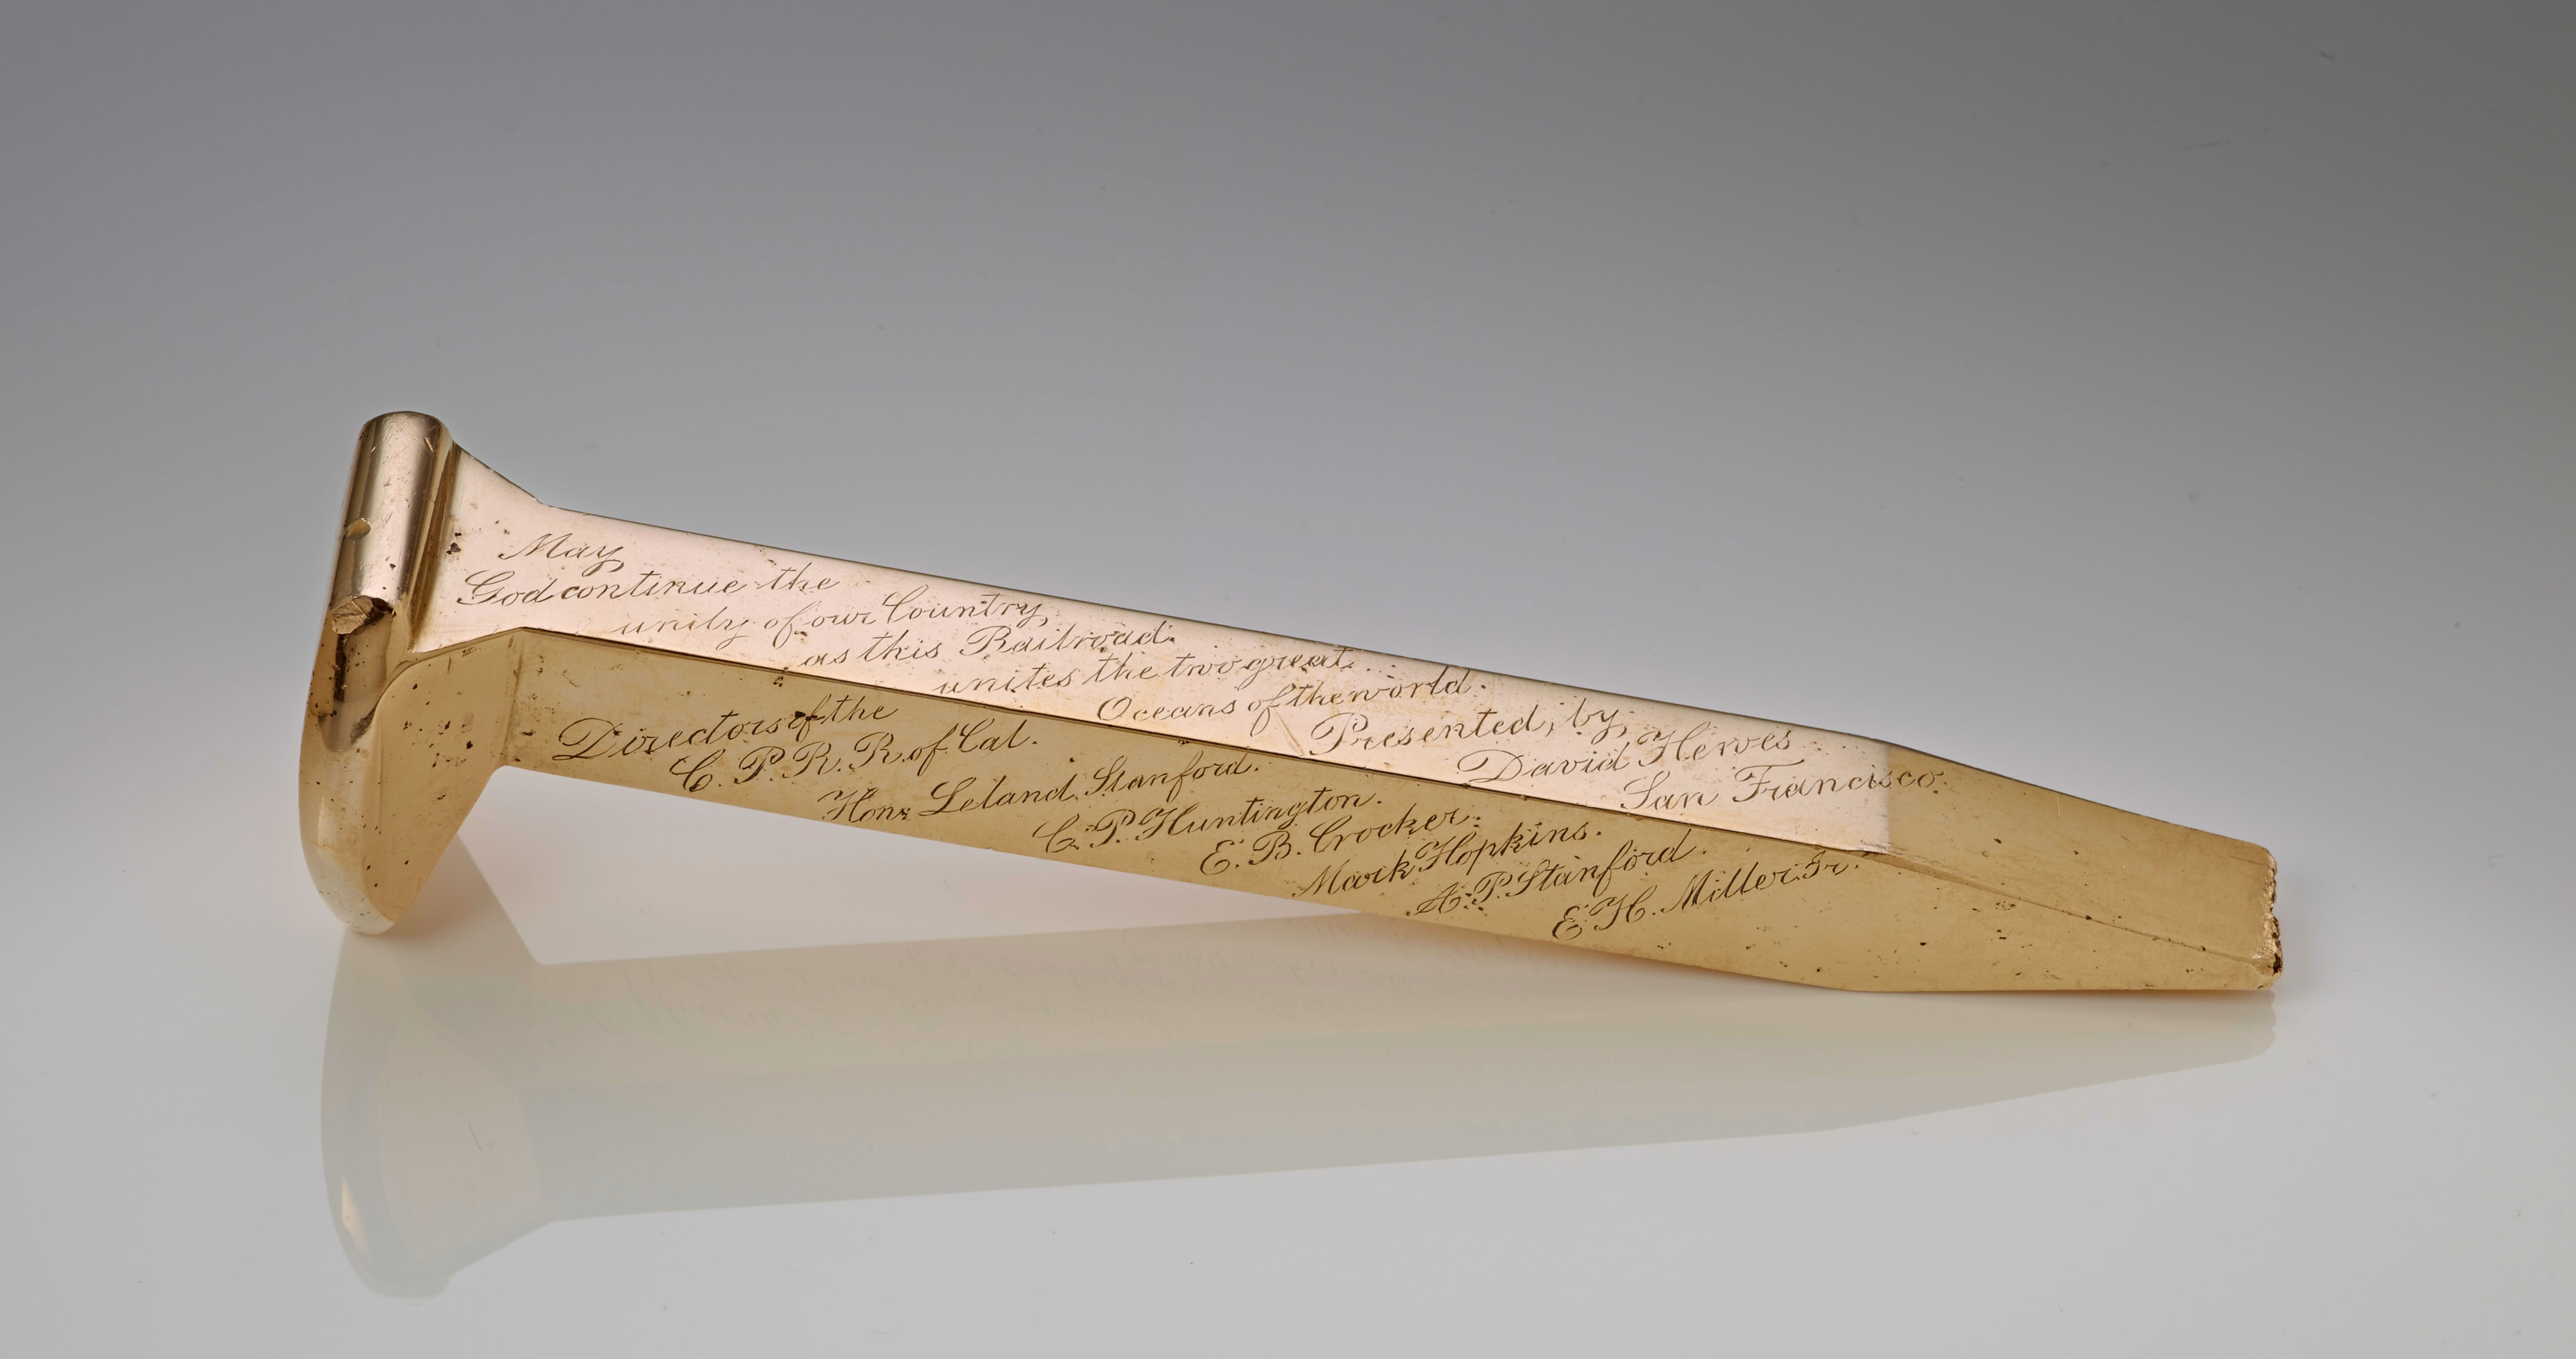 May
God continue the
unity of our Country,
as this Railroad.
unites the two great
Oceans of the world.
Presented, by,
David Hewes
San Francisco.
Directors of the
C. P. R. R. of Cal.
Hon. Leland Stanford.
C. P. Huntington.
E. B. Crocker.
Mark Hopkins.
A. P. Stanford.
E. H. Miller. Jr.